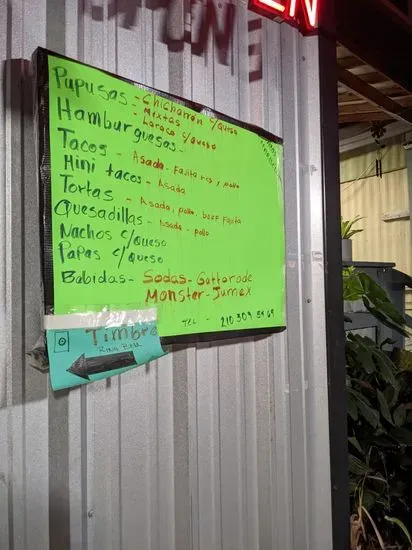 EN
Pupusas - Chicharron c/Queso
- Mixtas
- Loroco c/Queso
Hamburguesas -
Tacos - Asada, Fajita res, pollo
Mini tacos - Asada
Tortas - Asada, pollo, beef Fajita
Quesadillas - Asada, pollo
Nachos c/Queso
Papas c/Queso
Babidas - Sodas - Gattorade
Monster - Jumex
TEL -
Timbre
Ring Bell